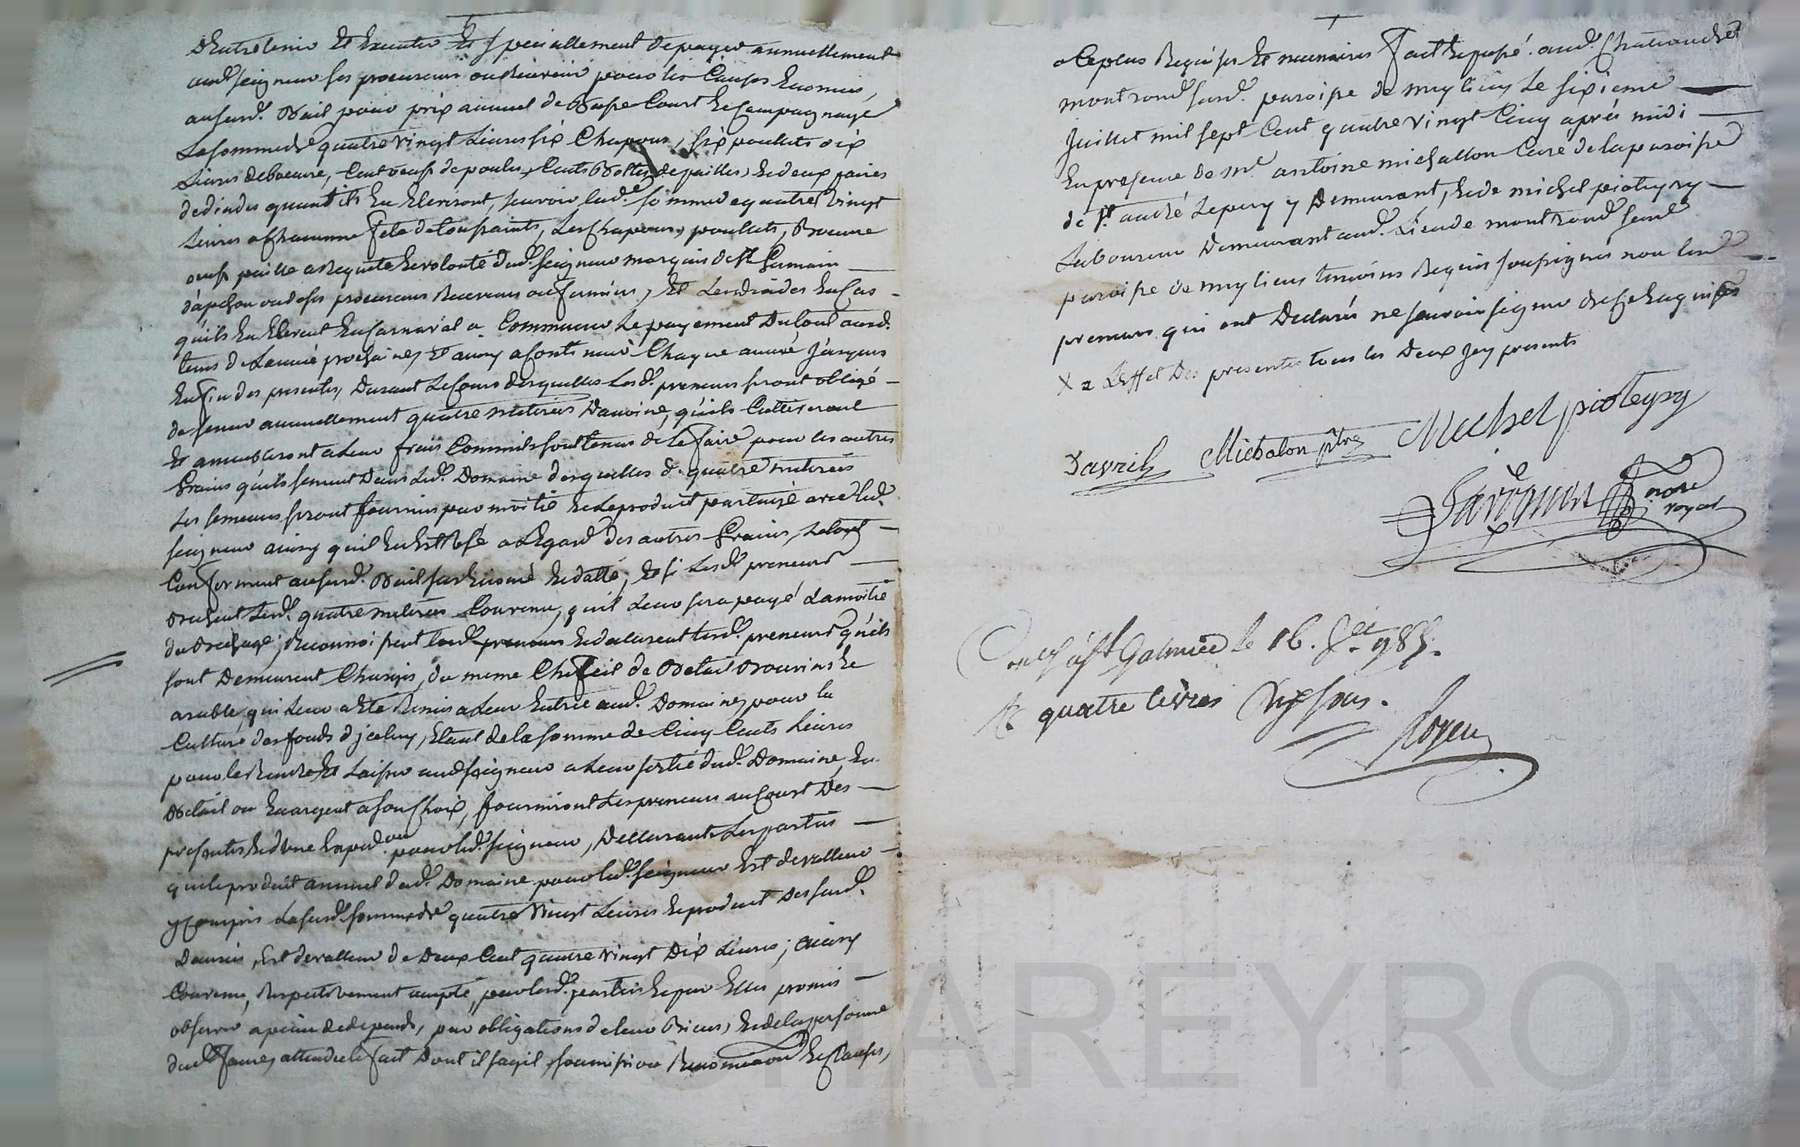 D'Entretenir Et Executer Et speciallement depayer annuellement
aud. seigneur ses procureurs ou Receveurs pour les Causes Enoncées,
ausurd. Bail pour prix annuel de Basse Court Et Campagnage
La somme de quatre vingt Livres six Chapons, six poulets six
Livres de beurre, Cent oeufs de poules, Cents Bottes de pailles, Et deux paires
de dindes quand ils En Eleveront, savoir lad.e somme de quatre vingt
Livres a Chacunne fete de toussaints, Les Chapons, poullets, Beurre
oeufs paille a Requete Et volonté dud. seigneur marquis de St Germain
d'apchon ou de ses procureurs Receveurs ou fermiers, Et Les dindes En Cas
qu'ils En Elevent En Carnaval a Commencer Le payement Du tout aud.
tems de L'année prochaine, Et ainsy a Continuer Chaque année Jusques
En fin des presentes, Durant Le Cours desquelles Les d. preneurs seront obligé
de semer annuellement quatre meterées D'avoine, qu'ils Cultiveront
Et ameubliront a Leur frais Comme ils sont tenus de Le faire pour les autres
Grains qu'ils sement Dans Lud. Domaine desquelles d. quatre meterées
Les semences seront fournies par moitié Et Le produit partagé avec led.
seigneur ainsy qu'il En Est Usé a L'Egard des autres Grains, Le tout
Conforment ausurd. Bail sus Enoncé Et datté, Et si Les d. preneurs
Brechent Les d. quatre meterées Convenu, qu'il Leur sera payé La moitié
du Brechage; Reconnoissent Les d. preneurs Et declarent Les d. preneurs qu'ils
sont Demeurent Chargés, du meme Chepteil de Betail Bovin Et
arable, qui Leur a Eté Remis a Leur Entrée aud. Domaine pour la
Culture des fonds d'jceluy, Etant de la somme de Cinq Cents Livres
pour le Rendre Et Laisser aud. seigneur a Leur sortie dud. Domaine En
Betail ou En argent a son Choix, fourniront Les preneurs au Court Des
presentes Et d'une Exped.on pour led. seigneur, Declarants Les parties
que le produit annuel dud. Domaine pour led. seigneur Est de valleur
y Compris La susd. somme de quatre Vingt Livres Et produit Des surd.
Denrées, Est de valleur de Deux Cent quatre vingt Dix Livres; ainsy
Convenu, Respectivement accepté, par Les d. parties Et par Elles promis
observer a peine de depends, par obligations de leur Biens, Et de la personne
dud. faure, attendu Le fait Dont il s'agit, soumission Renonciation Et Clauses,
a Ce plus Requises Et necessaires fait Et passé aud. Chateau de
montrond susd. paroisse de mylieu Le sixieme
Juillet mil sept Cent quatre vingt Cinq après midi
En presence de Mre antoine michallon Curé de la paroisse
de St andré Le puy y Demeurant, Et de michel pioteyry
Laboureur Demeurant aud. Lieu de montrond susd.
paroisse de mylieu temoins Requis soussignés non Les d.
preneurs qui ont Declarés ne savoir signer De Ce Enquis
X a L'Effet Des presentes tous les Deux Icy presents
Davril Michalon ptre Michel pioteyry
notre royal
Conllé a St Galmier le 16. Jet 1785.
R. quatre livres Dix sous.
Royer
CHAREYRON